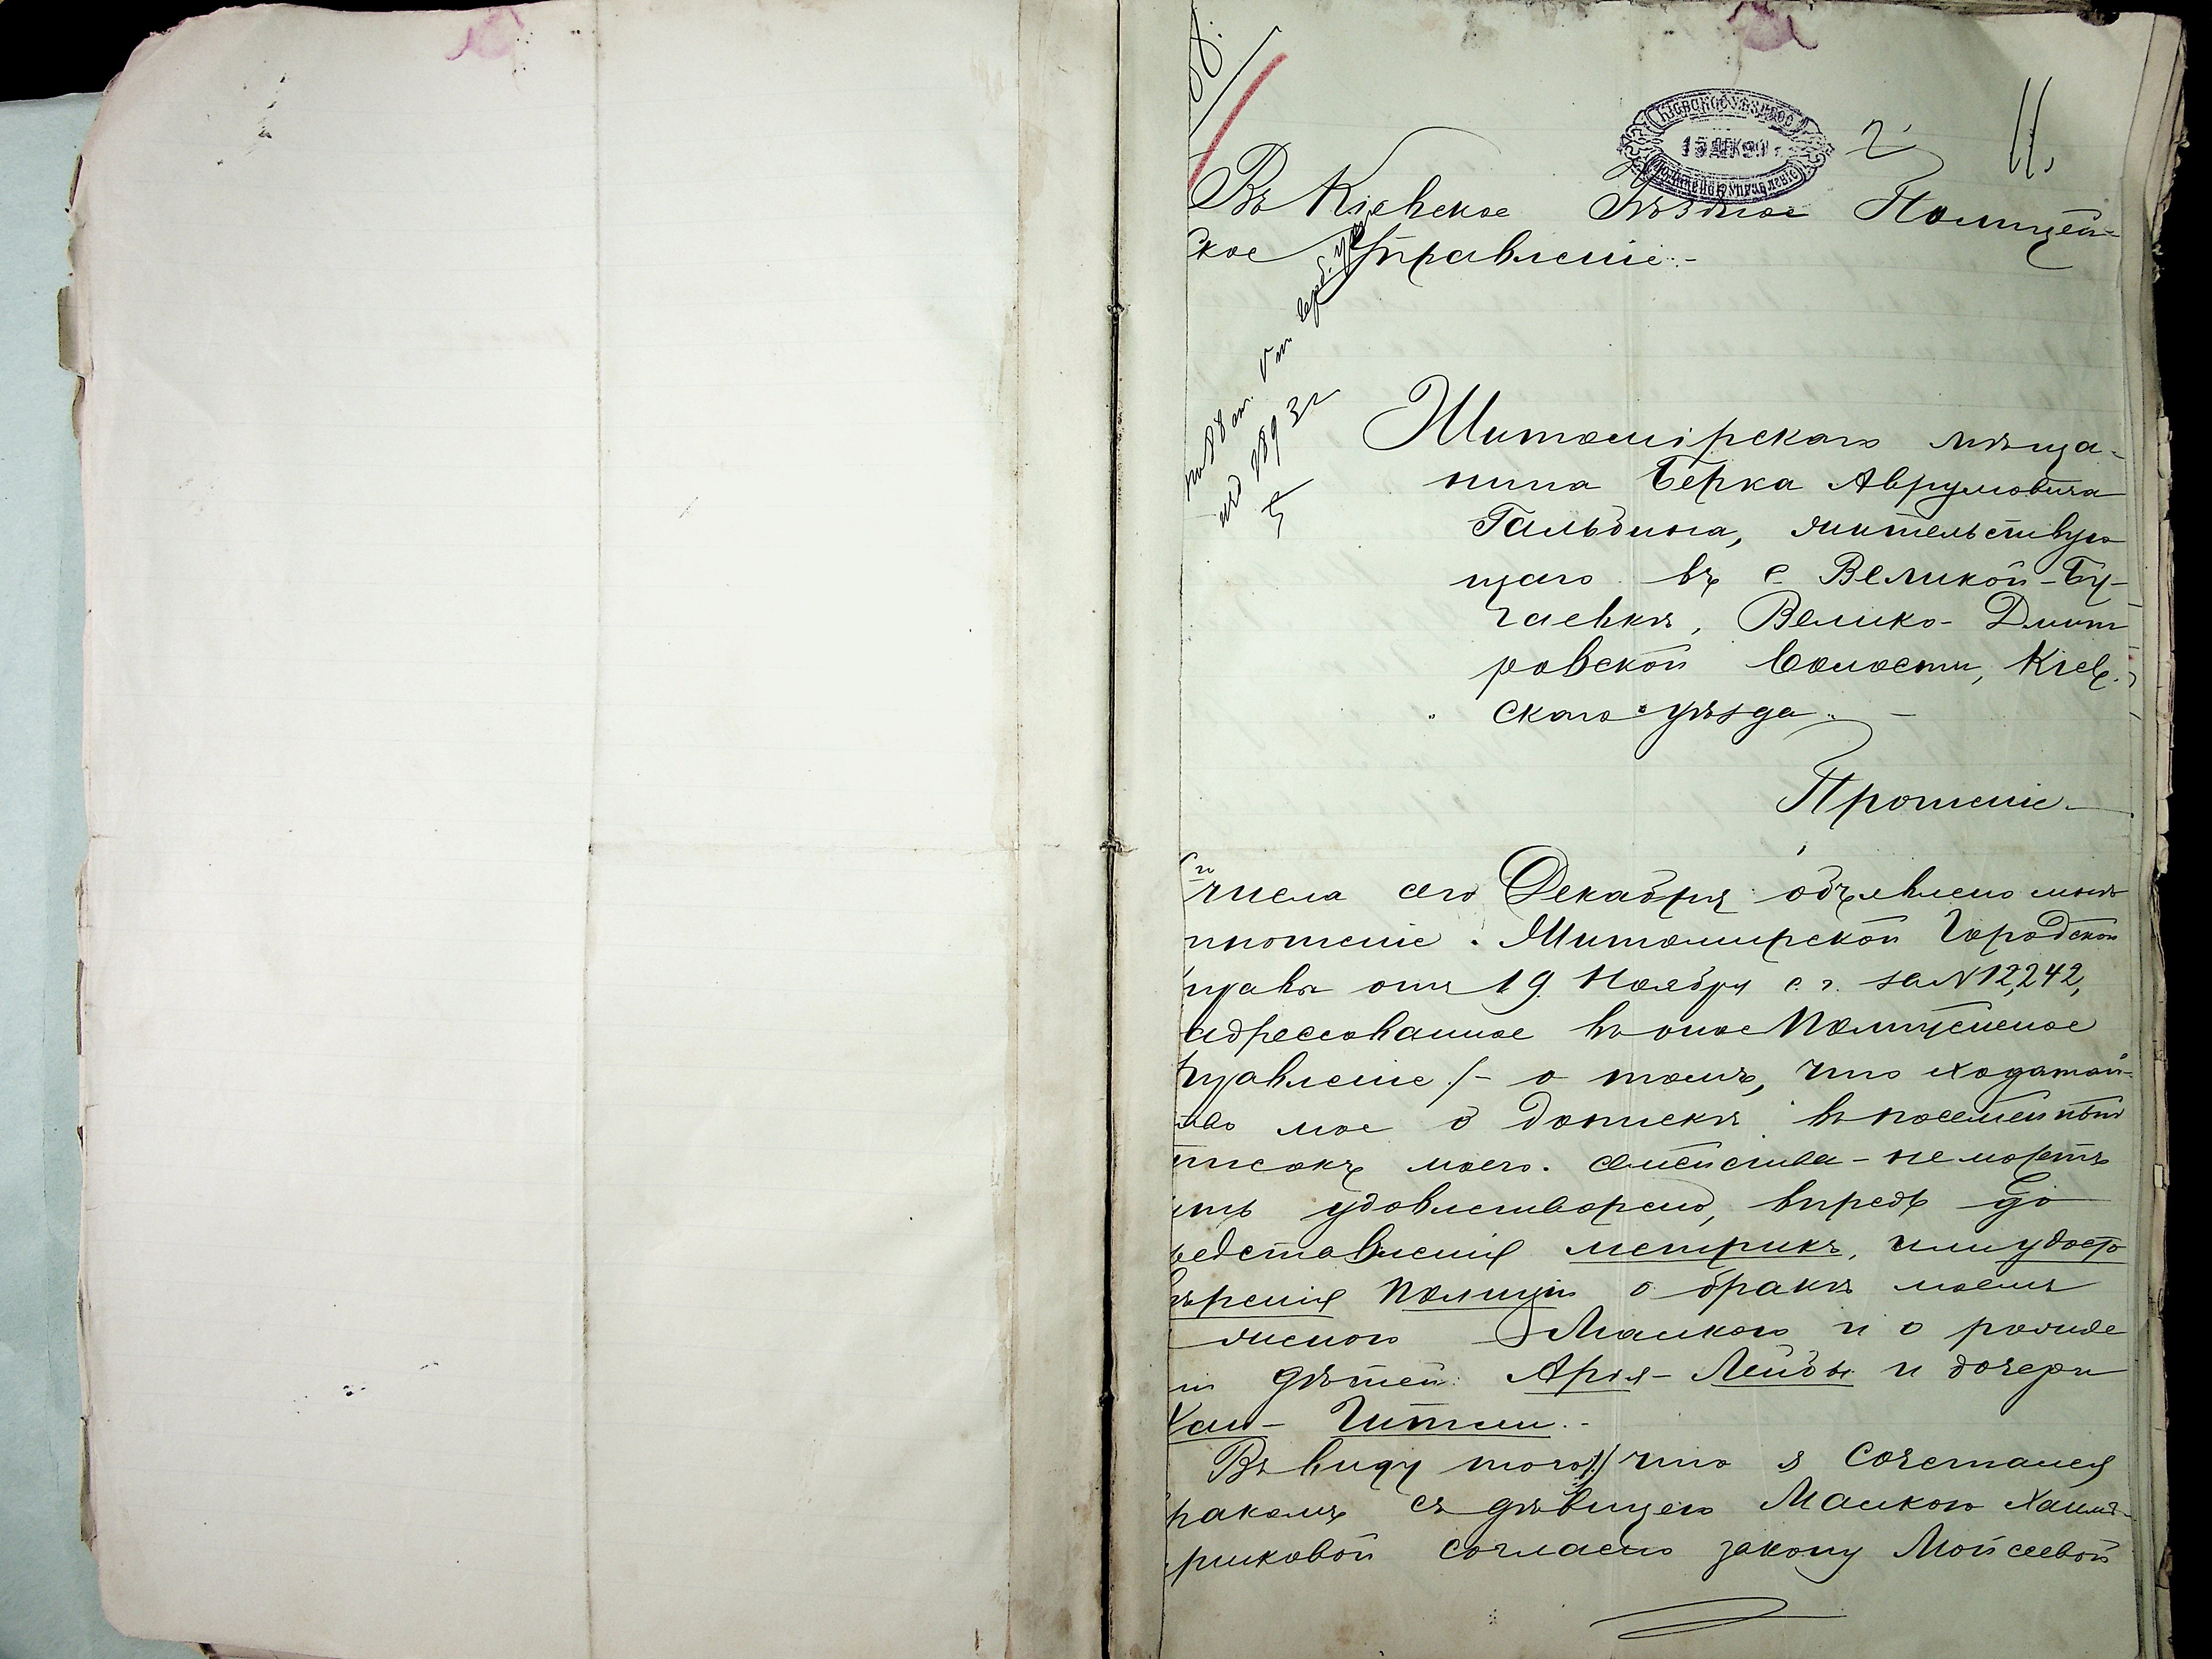 11.
Кіевское Уѣздное
15 ДЕК 90 г.
Полицейск. Управленіе
Въ Кіевское Уѣздное Полицей-
ское Управленіе.-
Житомірскаго мѣща-
нина Берка Аврумовича
Гальдина, жительствую
щаго въ с Великой-Бу-
гаевкѣ, Велико-Дмит
ровской волости, Кіев-
скаго уѣзда. -
Прошеніе.
числа сего Декабря объявлено мнѣ
ношеніе Житомирской Городской
правы отъ 19 Ноября с. г. за N 12,242,
адрессованное въ оное Полицейское
правленіе /- о томъ, что ходатай-
тво мое о допискѣ въ посемейный
писокъ моего семейства - не можетъ
ыть удовлетворено, впредь до
редставленія метрикъ, или удосто
вѣренія Полиціи о бракѣ моемъ
женою Малкою и о рожде
ш дѣтей: Арія-Лейбы и дочери
Хаи-Гитли.-
Въ виду того, что я сочетался
ракомъ съ дѣвицею Малкою Хаимъ-
риковой согласно закону Мойсеевой